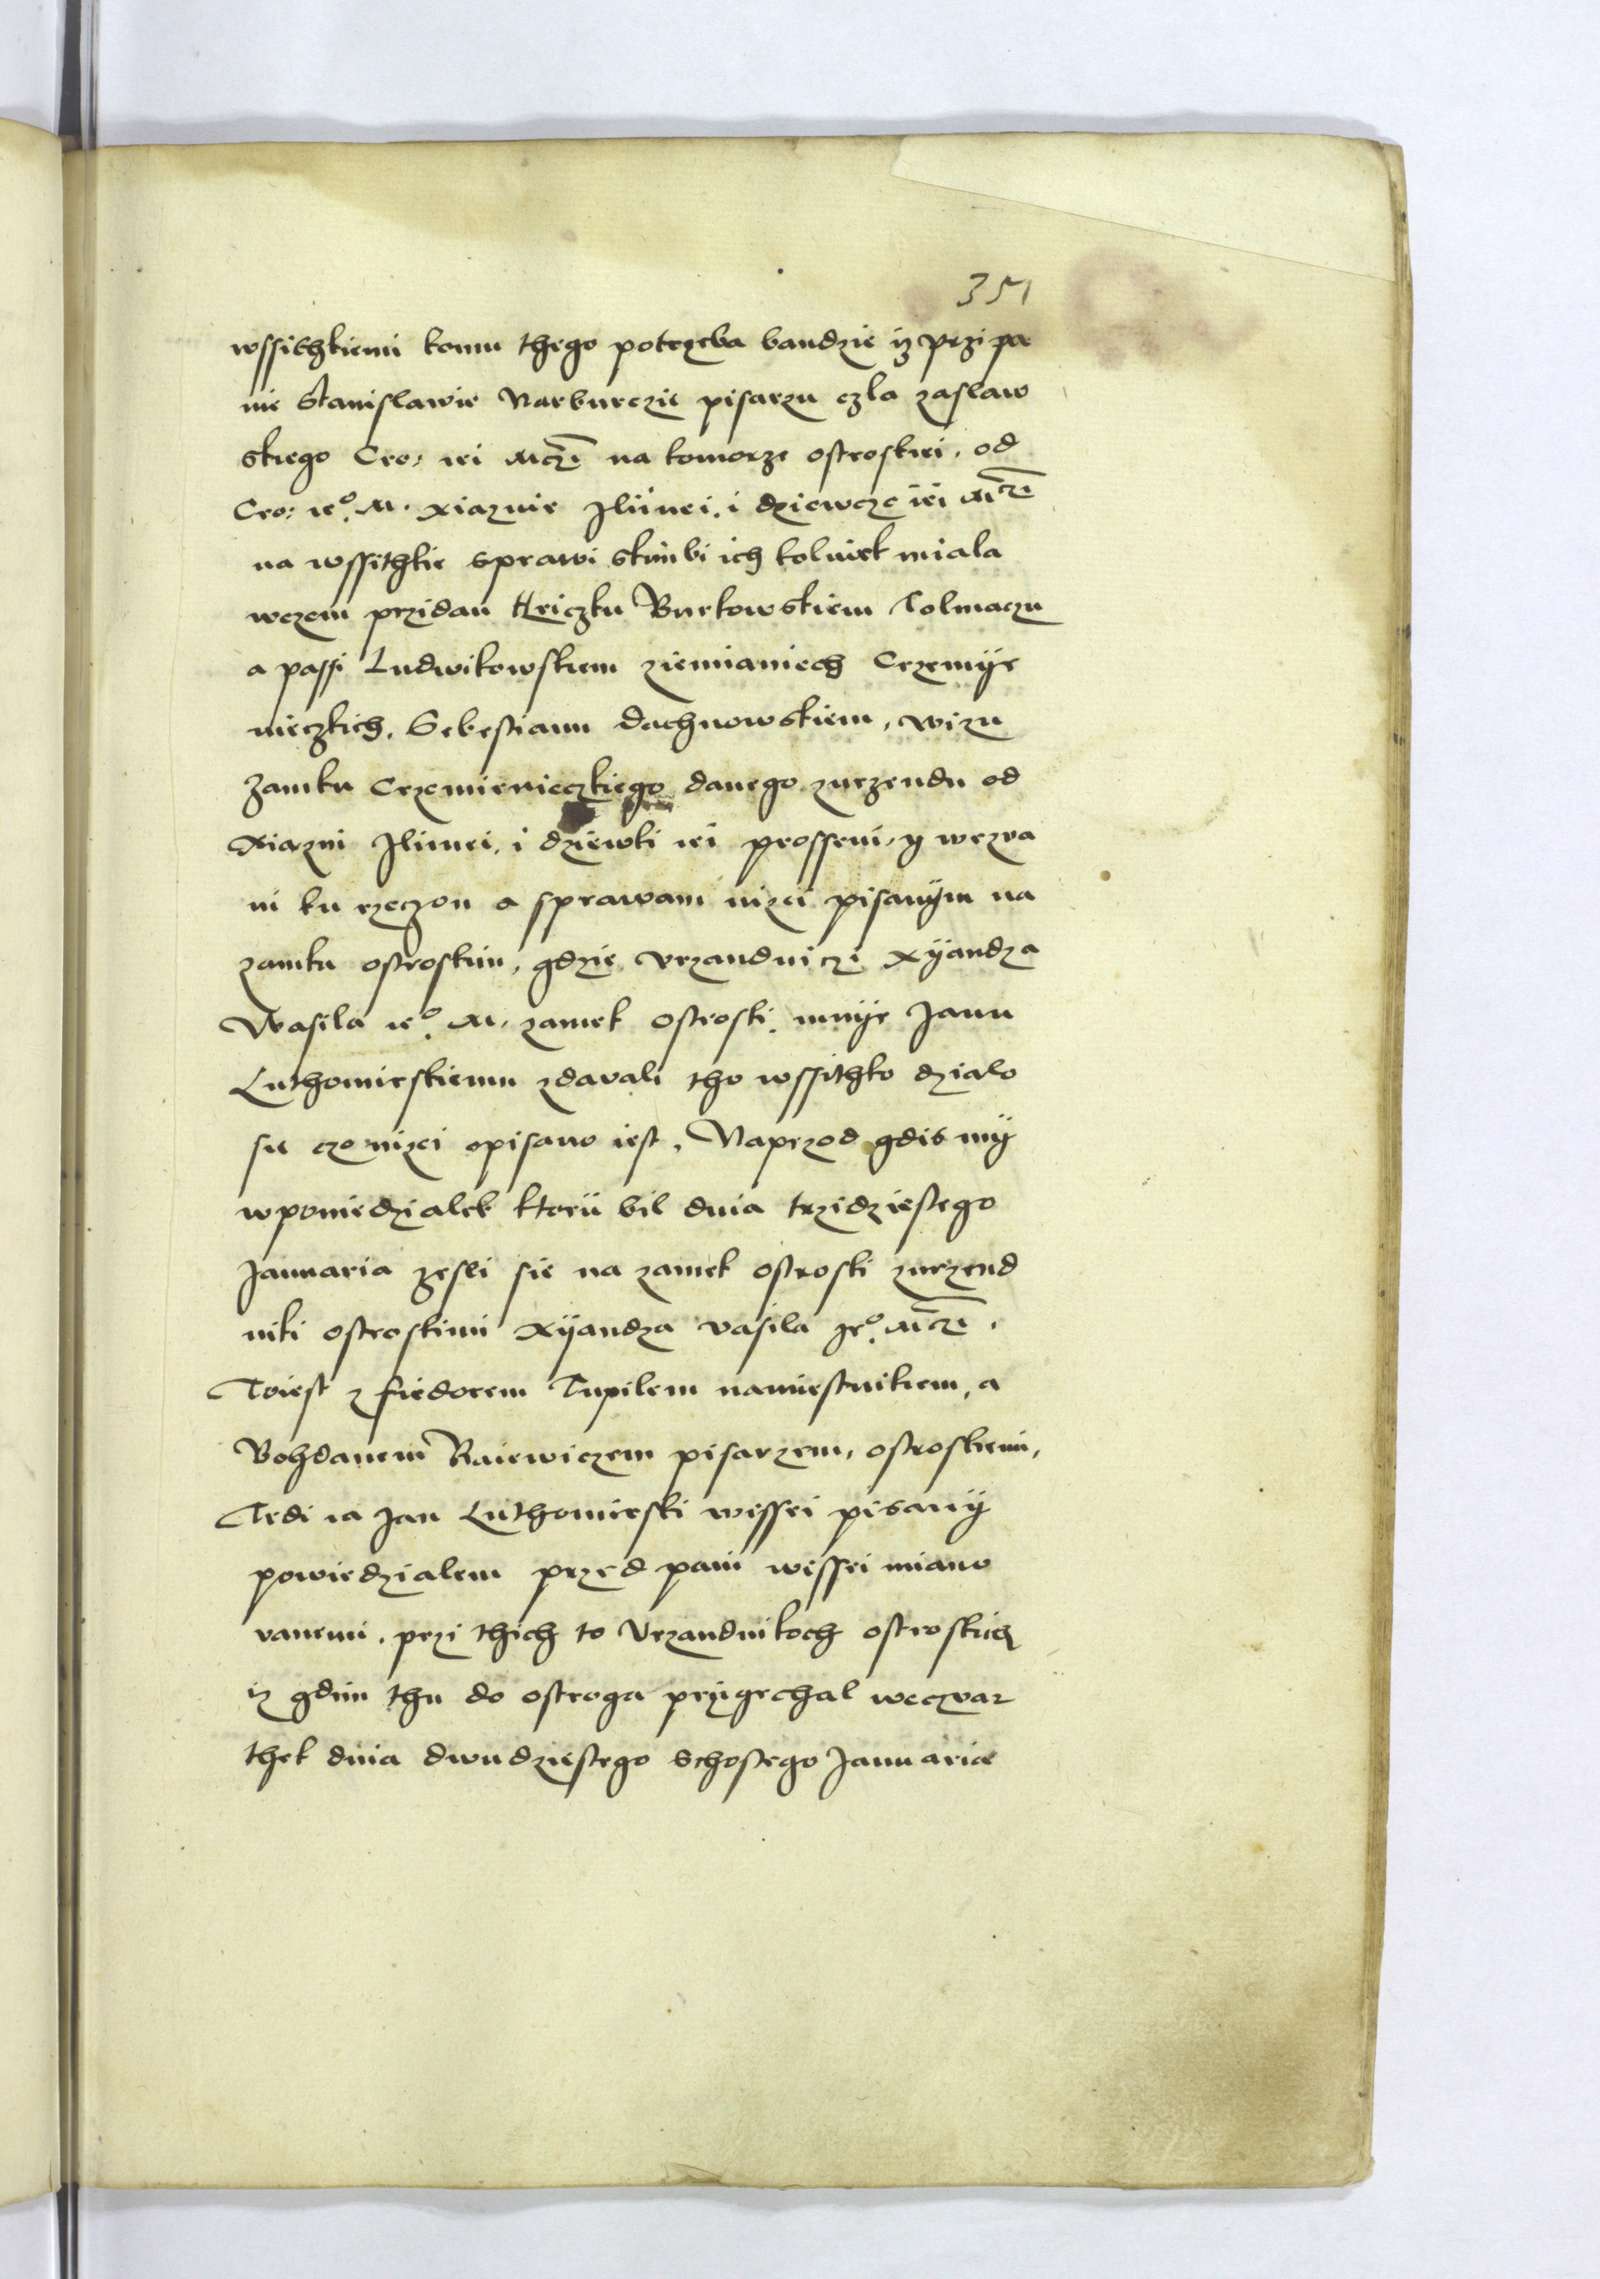 351
wssithkiemi komu thego potrzeba bandzie iz przi pa
nie Stanislawie Narburczie pisarzu czla zaslaw
skiego Cro: iei Mczi na komorze ostroskiei, od
Cro: ieº. M. xiaznie Iliinei, i dziewcze iei Mczi
na wssithkie sprawi skimbi ich kolwiek miala
wczem przidan Hriczku Burkowskiem Tolmaczu
a passi Ludwikowskiem ziemianiech Crzemye
nieczkich, Sebestianu dachnowskiem, wizu
Zamku Crzemienieczkiego danego zurzendu od
Xiazni Ilinei, i dziewki iei prosseni, y wezva
ni ku rzeczon a sprawam nizei pisanym na
zamku ostroskim, gdzie vrzandniczi Xyandza
Wasila ieº. M. zamek ostroski, mnye Janu
Luthomirskiemu zdavali tho wssithko dzialo
sie czo nizei opisano iest, Naprzod gdis my
wponiedzialek ktorii bil dnia trzidziestego
Januaria zesli sie na zamek ostroski zurzend
niki ostroskimi Xyandza vasila Jeº. Mczi,
Toiest z fiedorem Tupilem namiestnikiem, a
Bohdanem Raiewiczem pisarzem, ostroskiem,
Tedi ia Jan Luthomirski wissei pisany
powiedzialem przed pani wissei miano
vanemi, przi thich to Urzandnikoch ostroskich
iz gdim thu do ostroga przygechal weczvar
thek dnia dwudziestego schostego Januaria